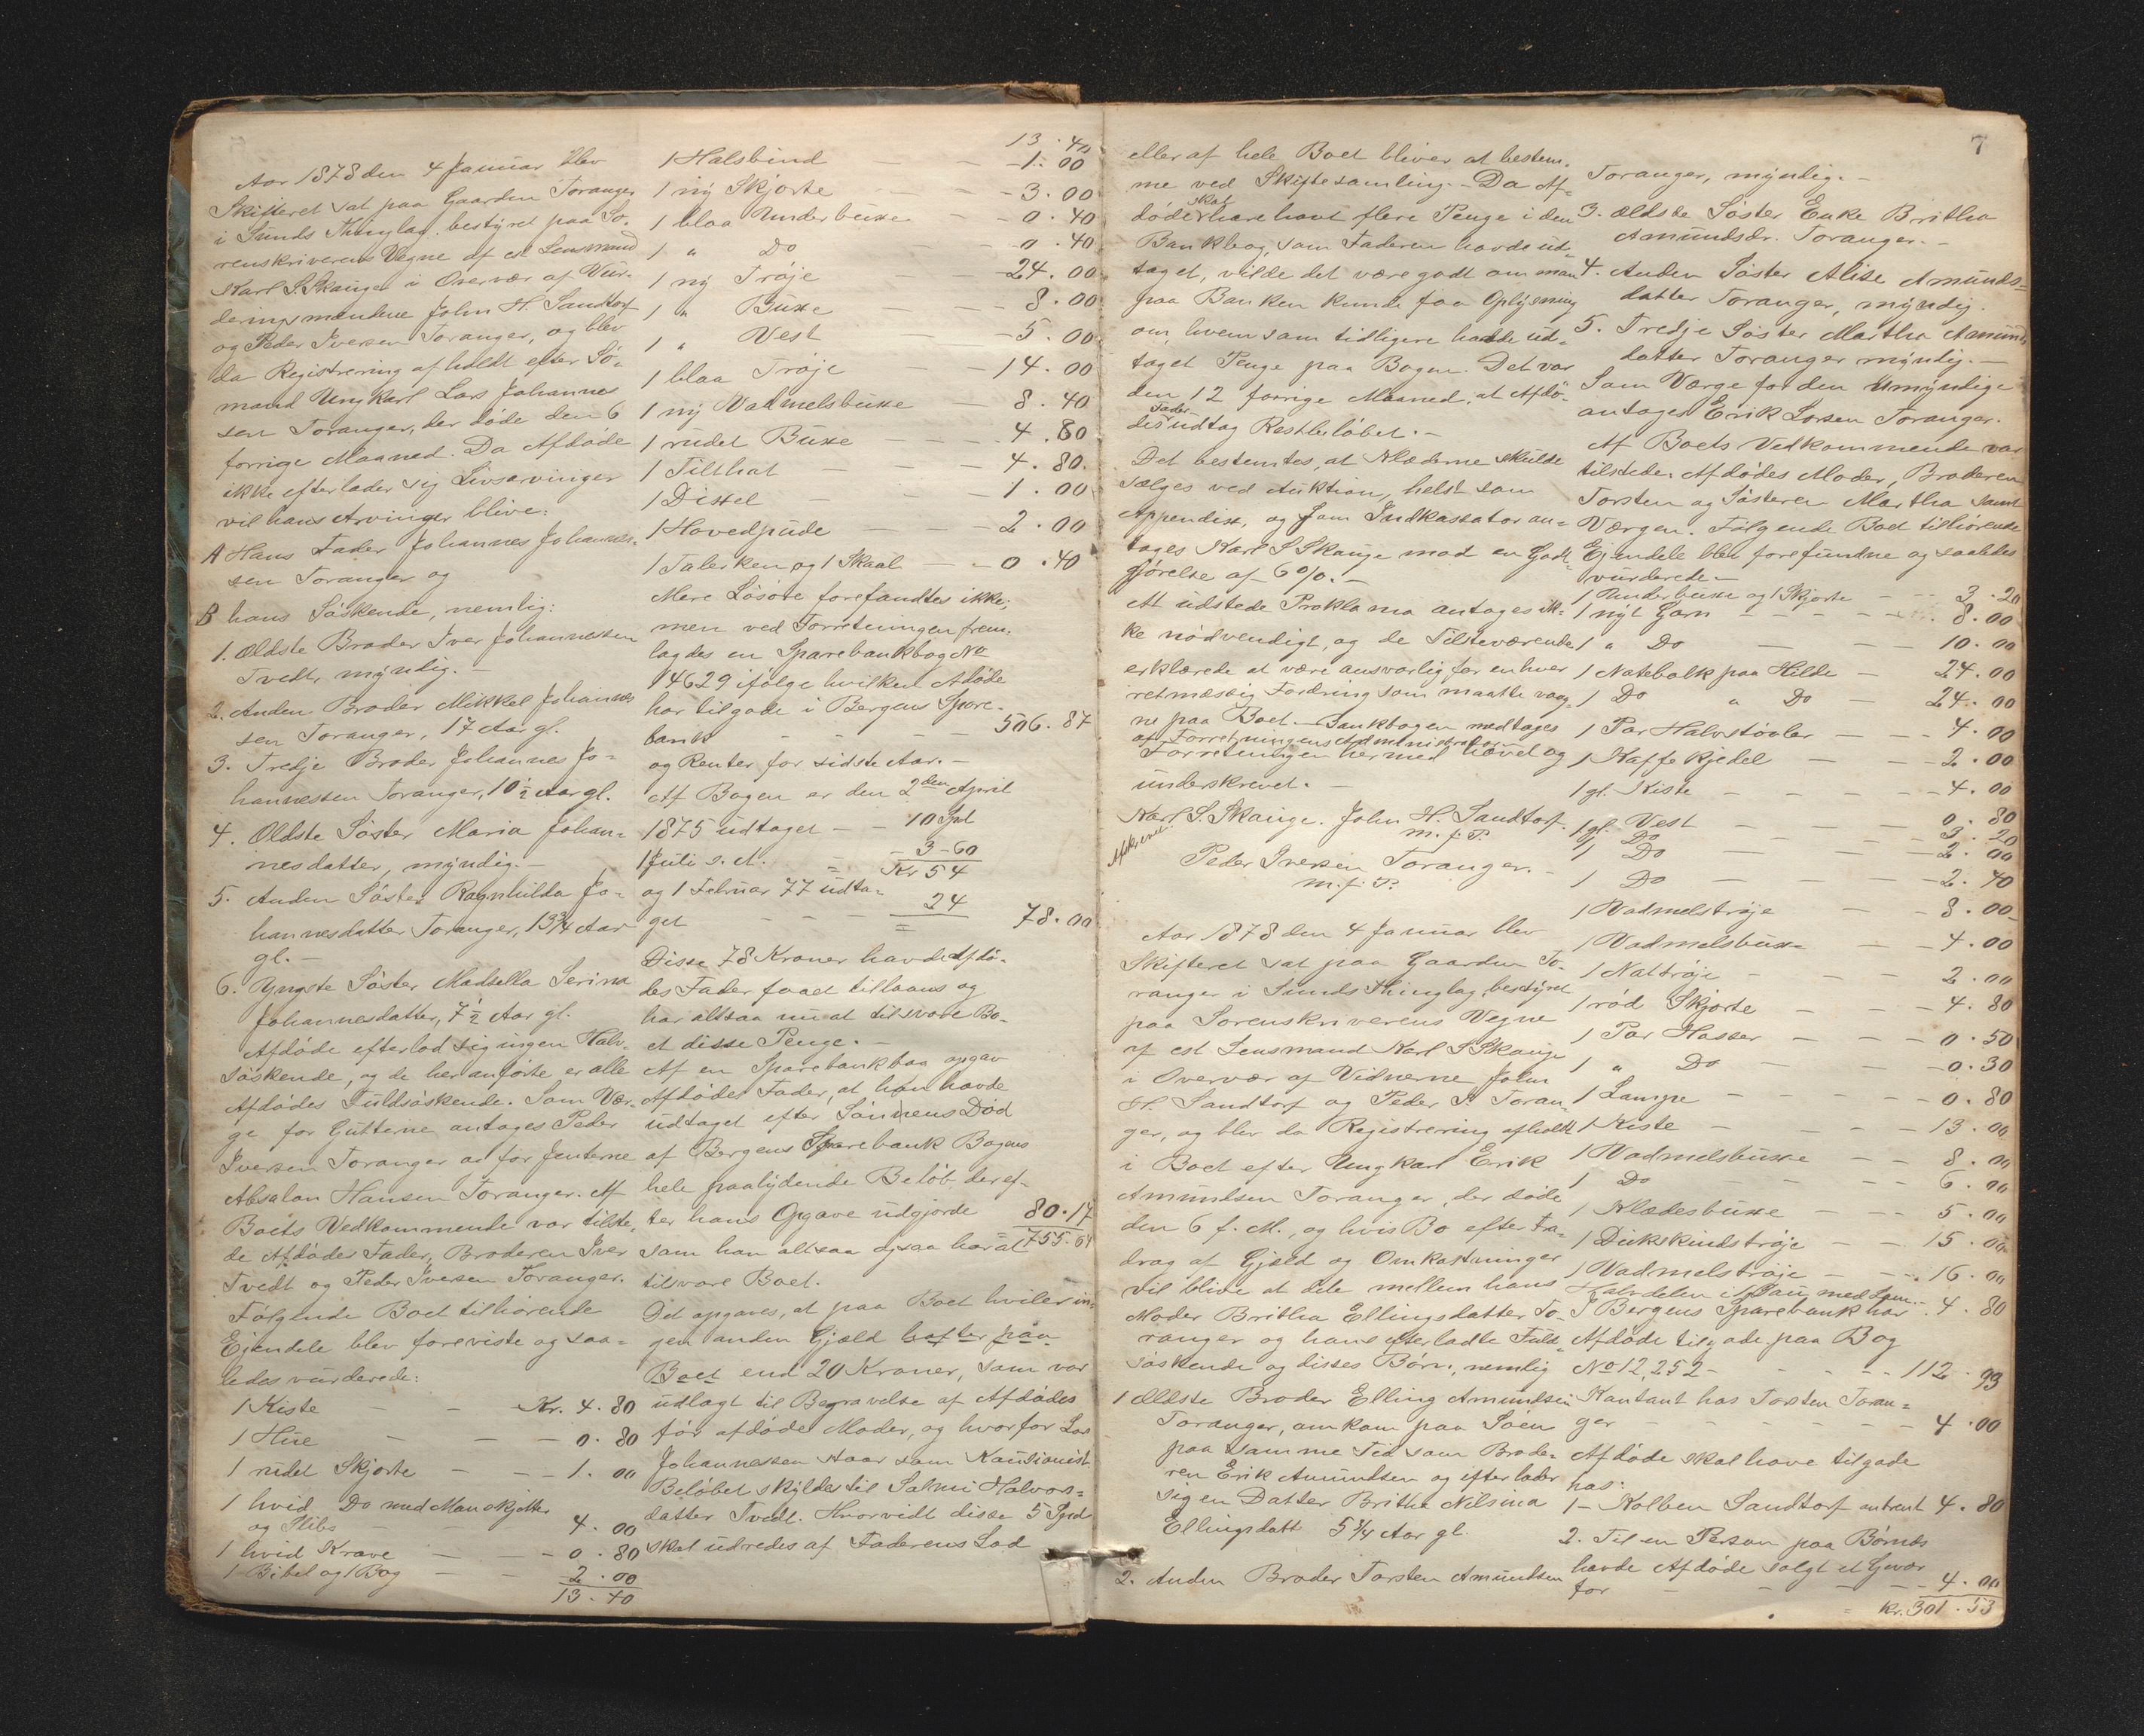 Aar 1878 den 4 Januar blev
Skifteret sat paa Gaarden Toranger
i Sunds Thinglag, bestyret paa So-
renskriverens Vegne af cst Lensmand
Karl S. Skauge i Overvær af Vur-
deringsmændene John H. Sandtorf
og Peder Iversen Toranger, og blev
da Registrering afholdt efter Sø-
mand Ungkarl Lars Johannes
sen Toranger, der døde den 6
forrige Maaned. Da Afdøde
ikke efterlader sig Livsarvinger
vil hans Arvinger blive:
A Hans Fader Johannes Johannes-
sen Toranger og
B hans Søskende, nemlig:
1. Ældste Broder Iver Johannessen
Tvedt, myndig.-
2. Anden Broder Mikkel Johannes
sen Toranger, 17 Aar gl.
3. Tredje Broder Johannes Jo=
hannessen Toranger, 10½ Aar gl.
4. Ældste Søster Maria Johan=
nesdatter, myndig.-
5. Anden Søster Ragnhilda Jo-
hannesdatter Toranger, 13¾ Aar
gl.-
6. Yngste Søster Madsella Serina
Johannesdatter, 7½ Aar gl.
Afdøde efterlod sig ingen Halv-
søskende, og de her anførte er alle
Afdødes Fuldsøskende. Som Vær-
ge for Gutterne antages Peder
Iversen Toranger og for Jenterne
Absalon Hansen Toranger. Af
Boets Vedkommende var tilste-
de Afdødes Fader, Broderen Iver
Tvedt og Peder Iversen Toranger.
Følgende Boet tilhørende
Ejendele blev foreviste og saa-
ledes vurderede:
1 Kiste - - Kr. 4.80
1 Hue - - 0.80
1 rudet Skjorte - - 1.00
1 hvid Do med Manskjetter
og Slibs - - 4.00
1 hvid Krave - - 0.80
1 Bibel og 1 Bog - 2.00
13.40
13.40
1 Halsbind - - 1.00
1 ny Skjorte - - 3.00
1 blaa Underbuxe - - 0.40
1 " Do - - 0.40
1 ny Trøje - - 24.00
1 " Buxe - - 8.00
1 " Vest - - 5.00
1 blaa Trøje - - 14.00
1 ny Vadmelsbuxe - 8.40
1 rudet Buxe - - 4.80
1 Filthat - - 4.80
1 Dixel - - 1.00
1 Hovedpude - - 2.00
1 Talerken og 1 Skaal - - 0.40
Mere Løsøre forefandtes ikke;
men ved Forretningen frem-
lagdes en Sparebankbog No
14629 ifølge hvilken Afdøde
har tilgode i Bergens Spare-
bank - - 506.87
og Renter for sidste Aar.-
Af Bogen er den 2den April
1875 udtaget - - 10 Spd
1 Juli s. A. - 3-60
Kr 54
og 1 Februar 77 udta=
get - - 24 78.00
Disse 78 Kroner havde Afdø-
des Fader faaet tillaans og
har altsaa nu at tilsvare Bo-
et disse Penge.-
Af en Sparebankbog opgav
Afdødes Fader, at han havde
udtaget efter Sønnens Død
af Bergens Sparebank Bogens
hele paalydende Beløb der ef-
ter hans Opgave udgjorde 80.17
som han altsaa ogsaa har at 755.64
tilsvare Boet.
Det opgaves, at paa Boet hviler in-
gen anden Gjæld hefter paa
Boet end 20 Kroner, som var
udlagt til Begravelse af Afdødes
før afdøde Moder, og hvorfor Lars
Johannessen staar som Kautionist.
Beløbet skyldes til Salmi Halvors=
datter Tvedt. Hvorvidt disse 5 Spd
skal udredes af Faderens Lod
7
eller af hele Boet bliver at bestem-
me ved Skiftesamling.- Da Af-
døde skal have havt flere Penge i den
Bankbog, som Faderen havde ud-
taget, vilde det være godt om man
paa Banken kunde faa Oplysning
om, hvem som tidligere havde ud-
taget Penge paa Bogen. Det var
den 12 forrige Maaned, at Afdø-
des Fader udtog Restbeløbet.-
Det bestemtes, at Klæderne skulde
sælges ved Auktion, helst som
Appendix, og som Indkassator an-
tages Karl S Skauge mod en Godt-
gjørelse af 6%.-
At udstede Proklama antages ik-
ke nødvendigt, og de Tilstedværende
erklærede at være ansvarlig for enhver
retmæssig Fordring som maatte vog-
ne paa Boet.- Bankbogen medtages
af Forretningens Administrator.
Forretningen hermed hævet og
underskrevet.-
Karl S. Skauge. John H. Sandtorf
m. f. P.
Afskrevet.
Peder Iversen Toranger.-
m. f. P.
Aar 1878 den 4 Januar blev
Skifteret sat paa Gaarden To-
ranger i Sunds Thinglag, bestyret
paa Sorenskriverens Vegne
af cst Lensmand Karl S Skauge
i Overvær af Vidnerne John
H. Sandtorf og Peder I. Toran-
ger, og blev da Registrering afholdt
i Boet efter Ungkarl Erik
Amundsen Toranger, der døde
den 6 f. M., og hvis Bo efter Fra-
drag af Gjæld og Omkostninger
vil blive at dele mellem hans
Moder Britha Ellingsdatter To-
ranger og hans efterladte Fuld-
søskende og disses Børn, nemlig
1 Ældste Broder Elling Amundsen
Toranger, omkom paa Søen
paa samme Tid som Brode-
ren Erik Amundsen og efterlader
sig en Datter Britha Nilsina
Ellingsdatt 5¾ Aar gl.
2. Anden Broder Torsten Amundsen
Toranger, myndig.-
3. Ældste Søster Enke Britha
Amundsdr. Toranger.-
4. Anden Søster Alise Amunds=
datter Toranger, myndig.
5. Tredje Søster Martha Amunds
datter Toranger myndig.-
Som Værge for den Umyndige
antages Erik Larsen Toranger.
Af Boets Vedkommende var
tilstede. Afdødes Moder, Broderen
Torsten og Søsteren Martha samt
Værgen. Følgende Boet tilhørende
Ejendele blev forefundne og saaledes
vurderede-
1 Underbuxe og 1 Skjorte - - 3.20
1 nyt Garn - - 8.00
1 " Do - - 10.00
1 Notebolk paa Hilde - 24.00
1 Do " Do - 24.00
1 Par Halvstøvler - - 4.00
1 Kaffekjedel - - 2.00
1 gl. Kiste - - 4.00
1 gl. Vest - - 0.80
1 Do - - 3.20
1 Do - - 2.00
1 Do - - 2.40
1 Vadmelstrøje - - 8.00
1 Vadmelsbuxe - - 4.00
1 Nattrøje - - 2.00
1 rød Skjorte - - 4.80
1 Par Hasser - - 0.50
1 " Do - - 0.30
1 Lampe - - 0.80
1 Kiste - - 13.00
1 Vadmelsbuxe - - 8.00
1 Do - - 6.00
1 Klædesbuxe - - 5.00
1 Dukskindstrøje - - 15.00
1 Vadmelstrøje - - 16.00
Halvdelen i 1 Sau med Lam - 4.80
I Bergens Sparebank har
Afdøde tilgode paa Bog
No 12,252 - - 112.93
Kontant hos Torsten Toran=
ger - - 4.00
Afdøde skal have tilgode
hos:
1- Kolben Sandtorf omtrent 4.80
2. Til en Person paa Børnes
havde Afdøde solgt et Gevær
for - - 4.00
Kr. 301.53